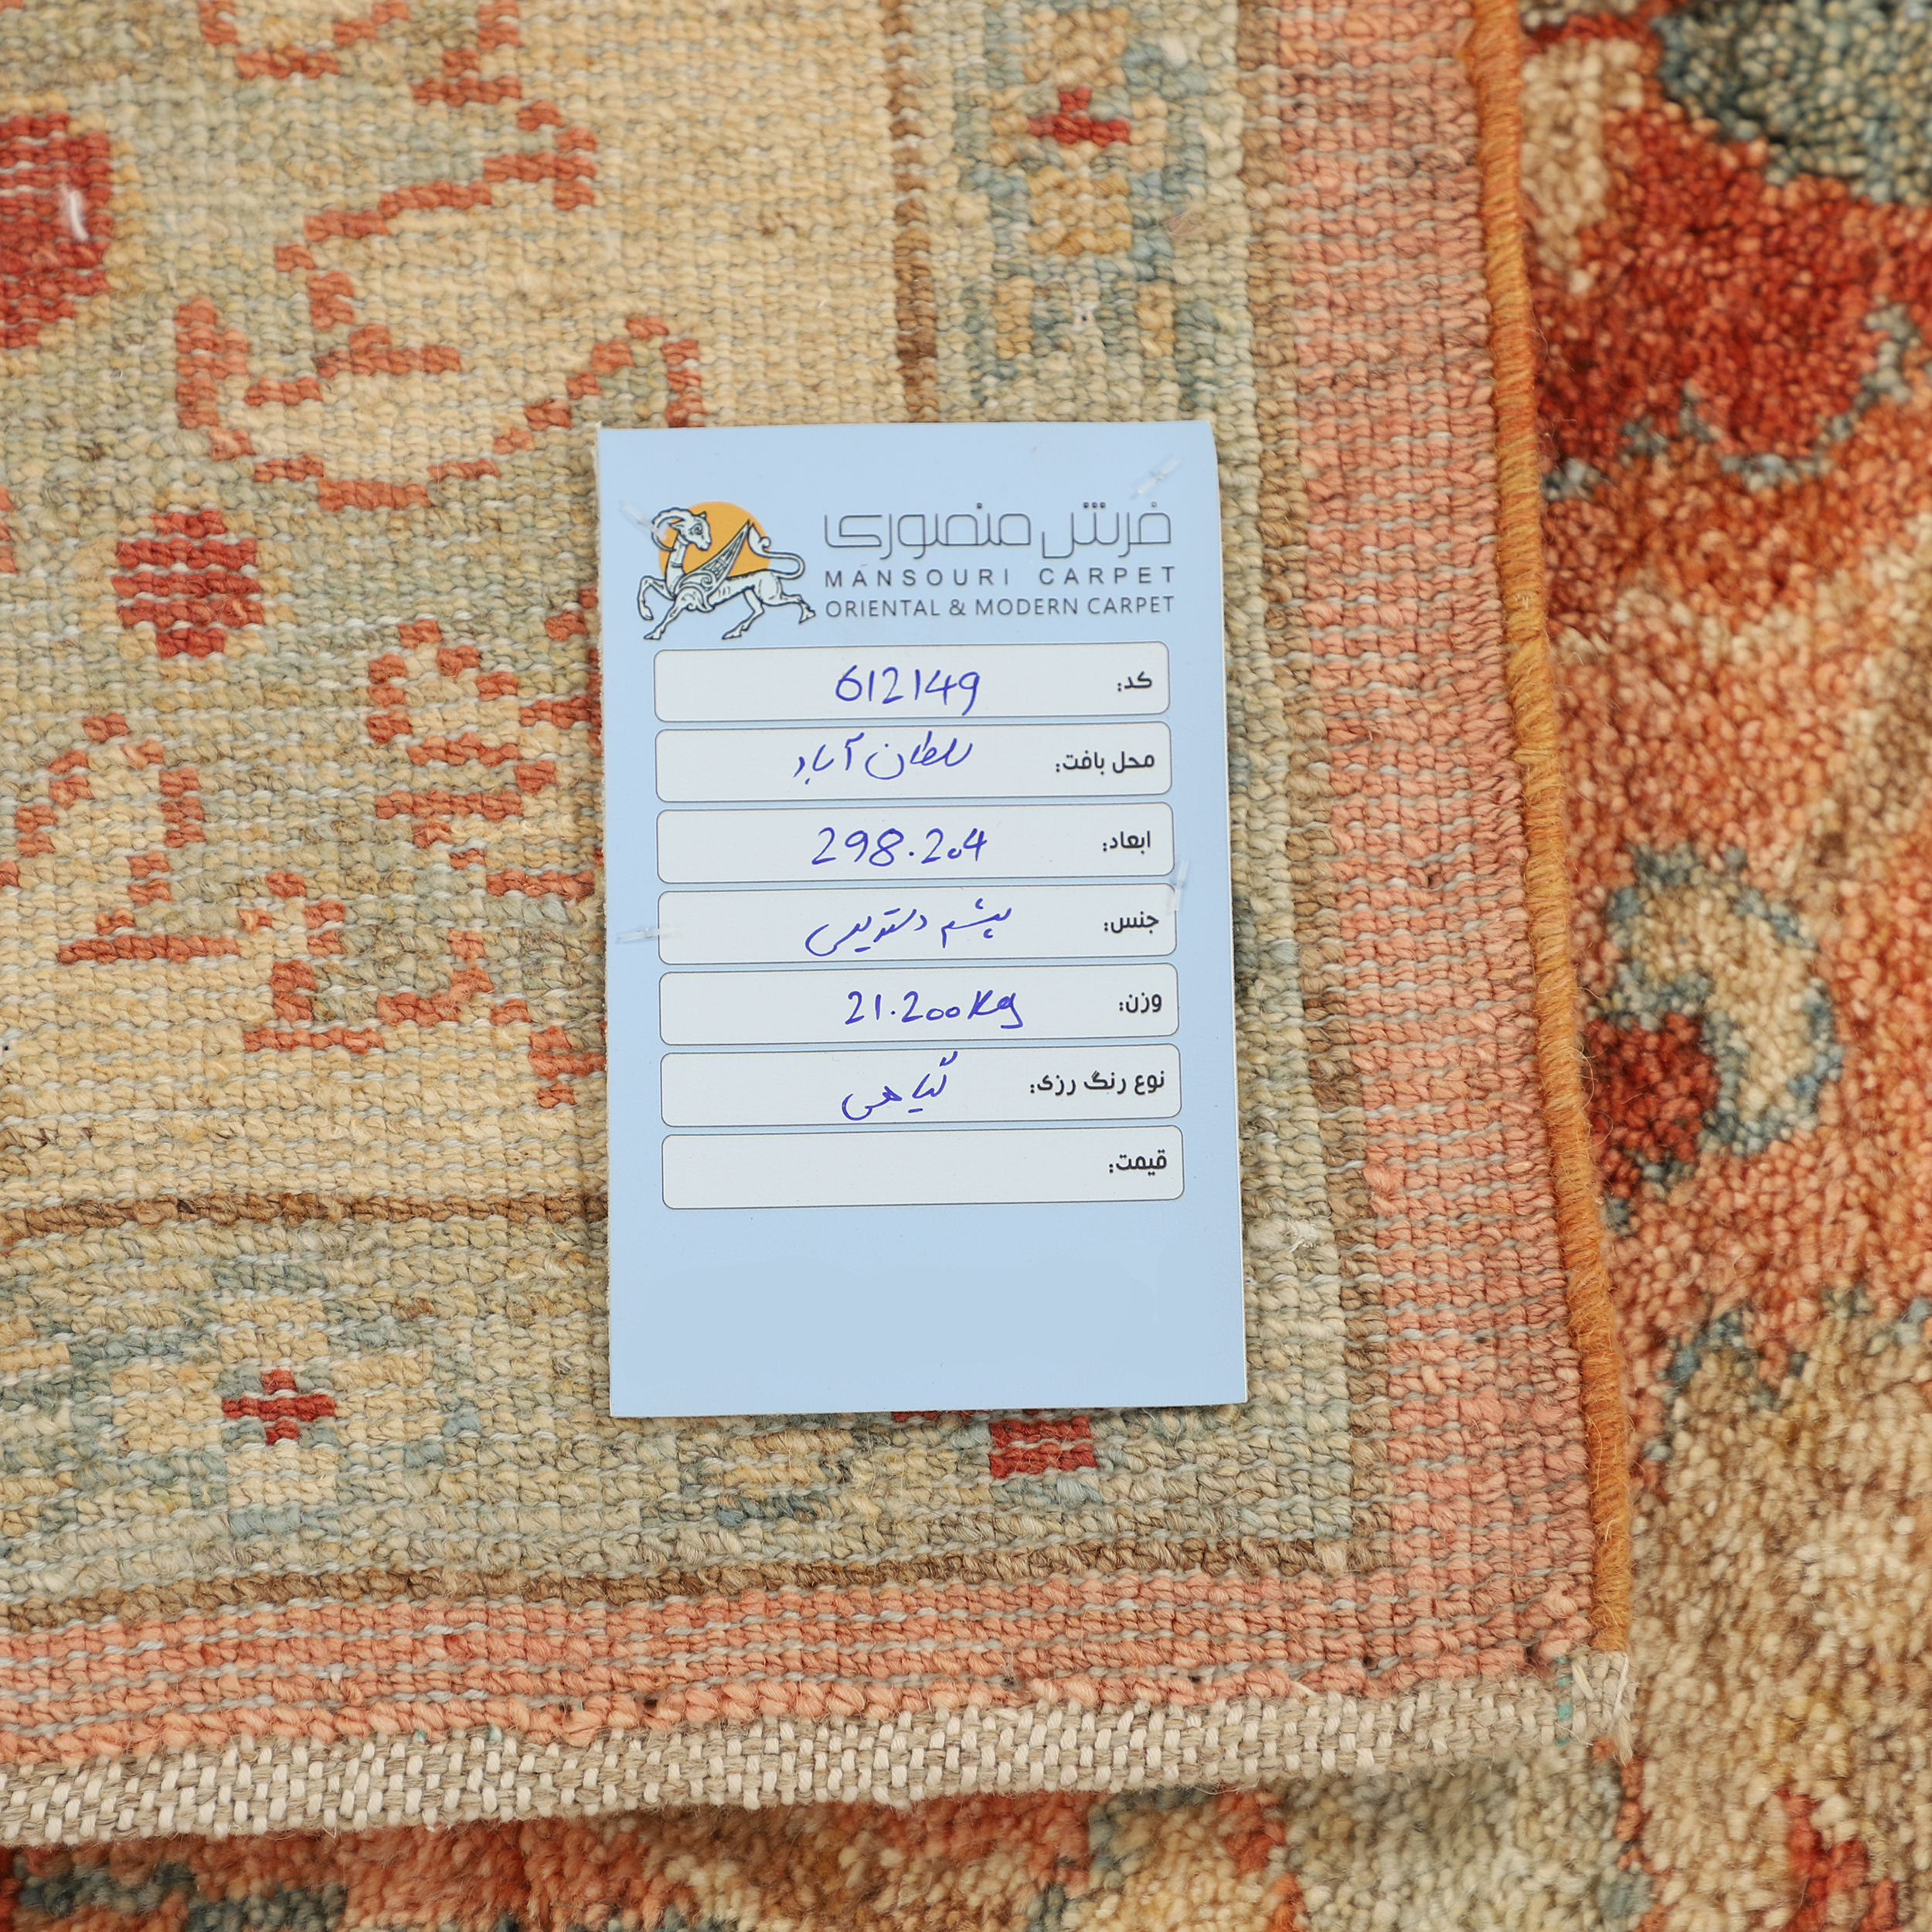 فرش منصوری
MANSOURI CARPET
ORIENTAL & MODERN CARPET
کد: 612149
محل بافت: سلطان آباد
ابعاد: 298.204
جنس: پشم دستریس
وزن: 21.200kg
نوع رنگ رزی: گیاهی
قیمت: